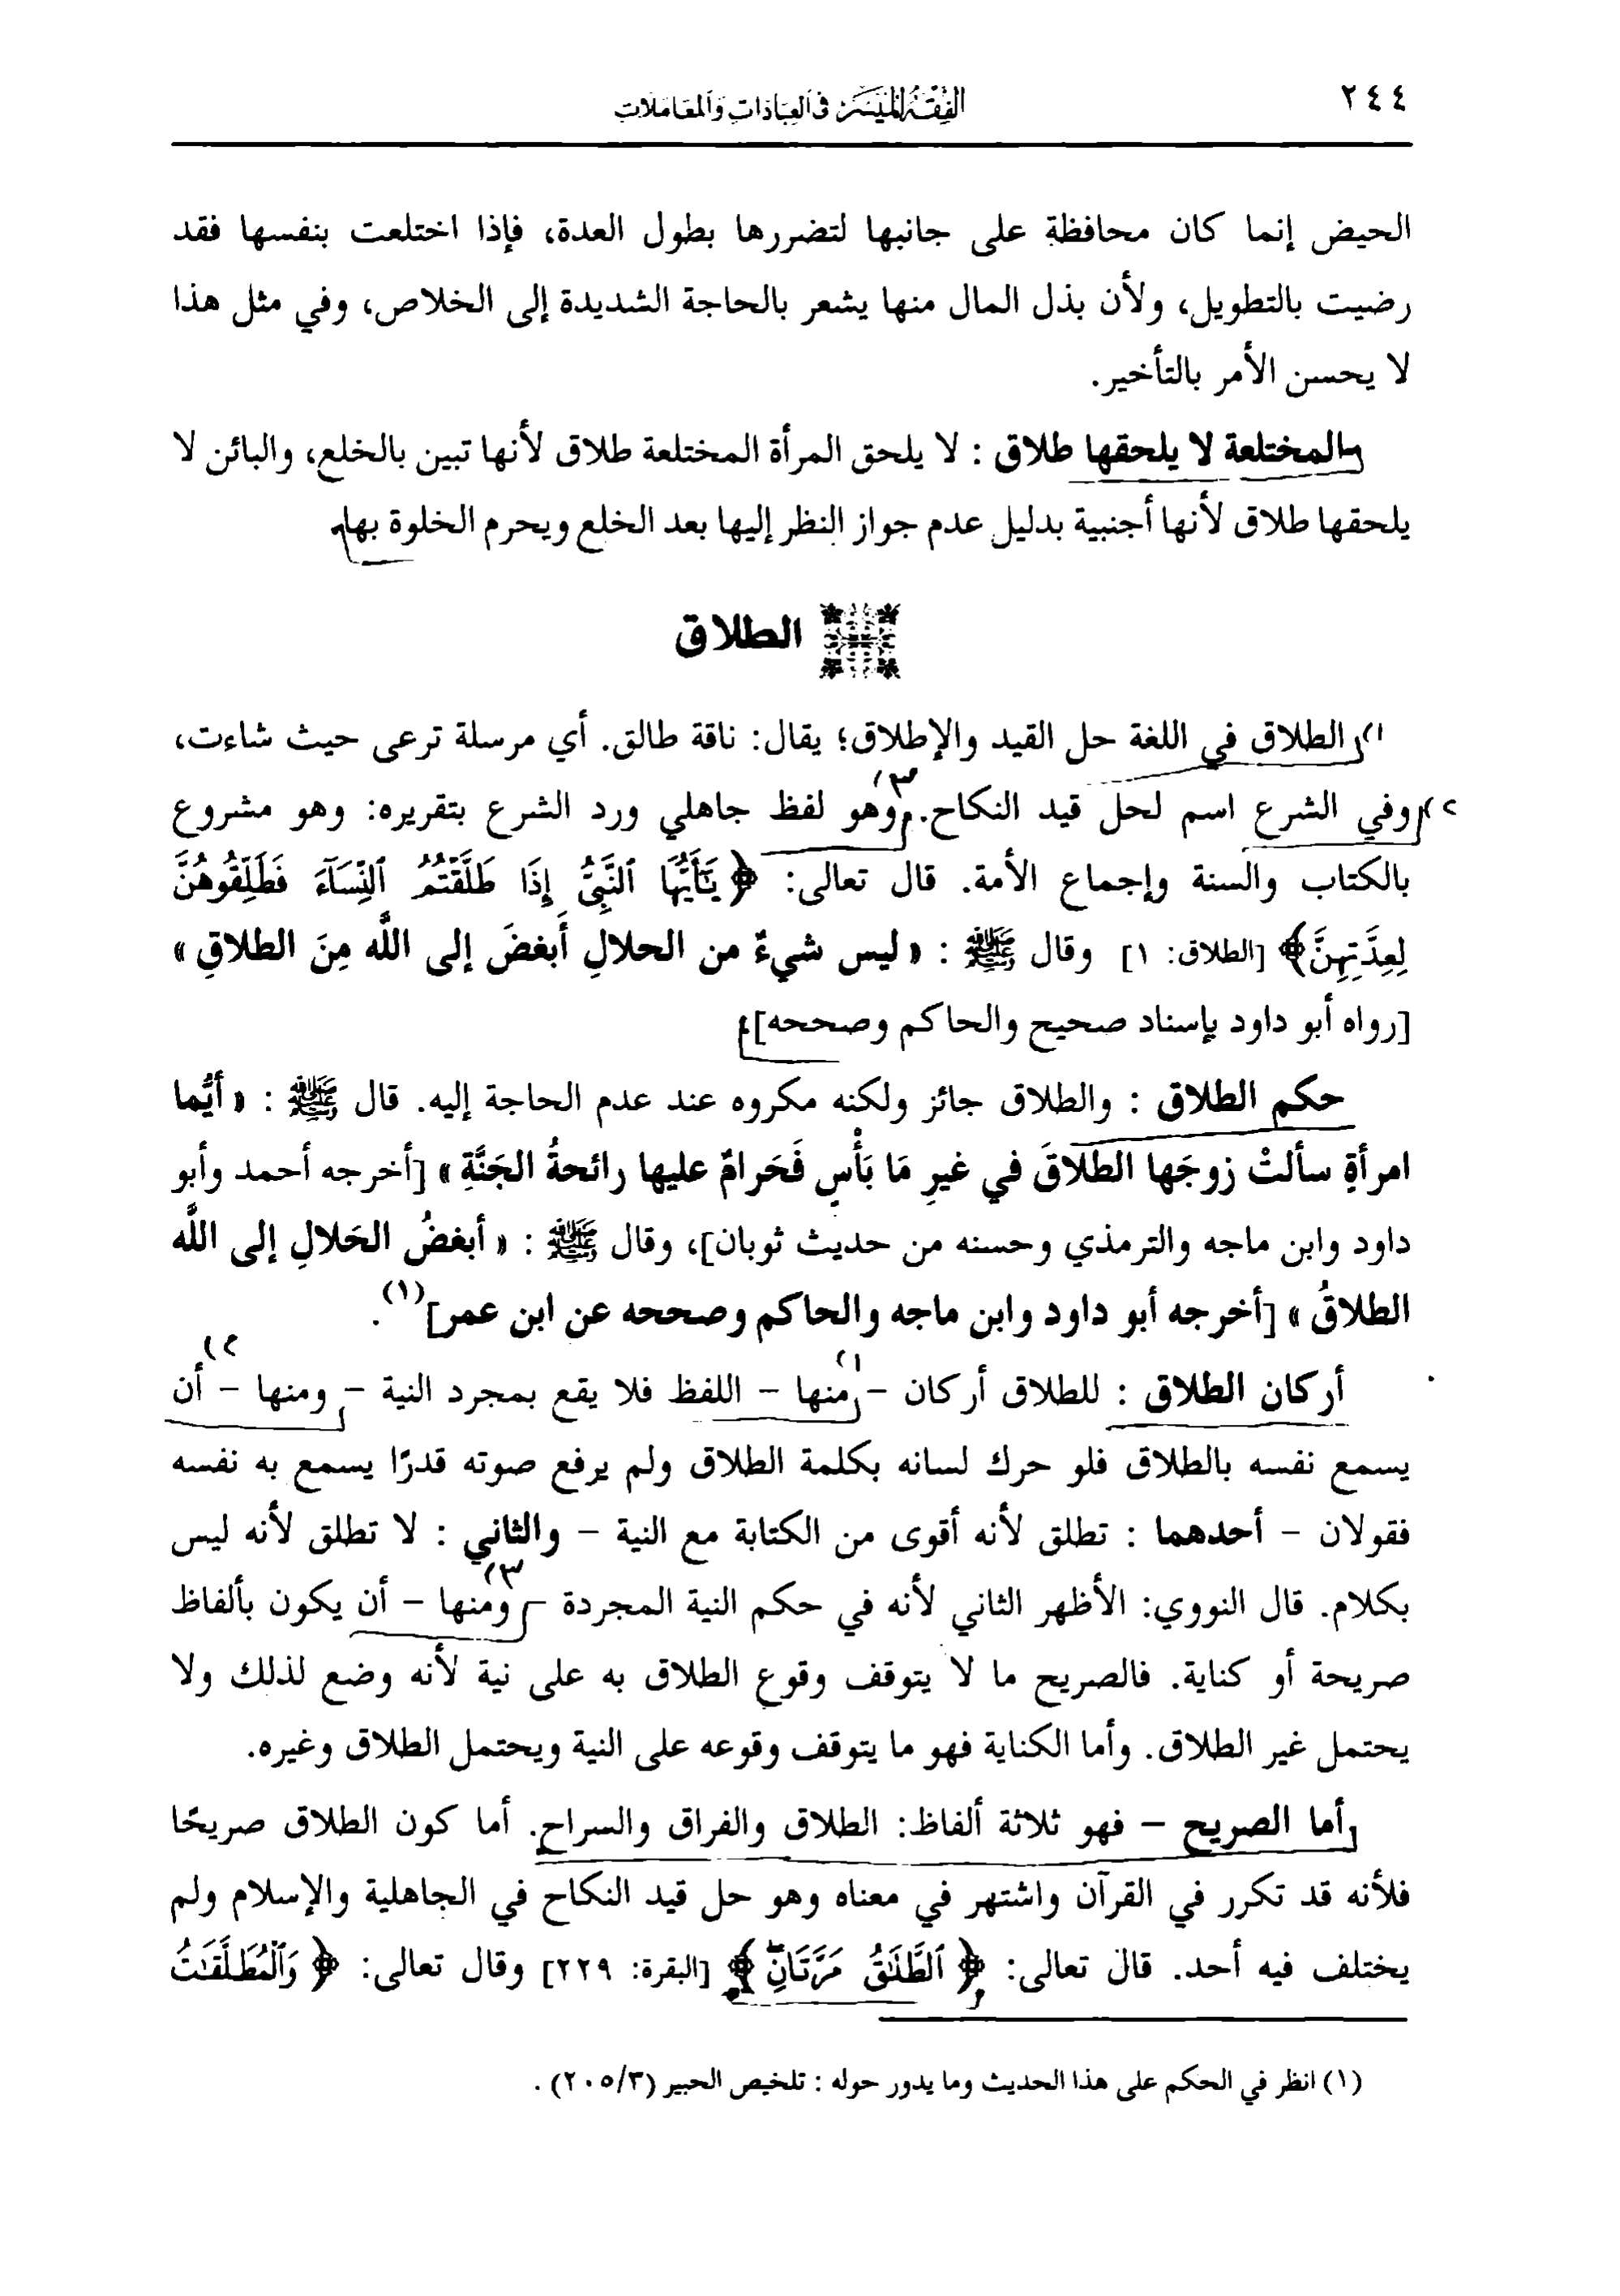 ٢٤٤
الفِقْهُ المُيَسَّرُ في العِبَادَاتِ وَالمُعَامَلَاتِ
الحيض إنما كان محافظة على جانبها لتضررها بطول العدة، فإذا اختلعت بنفسها فقد
رضيت بالتطويل، ولأن بذل المال منها يشعر بالحاجة الشديدة إلى الخلاص، وفي مثل هذا
لا يحسن الأمر بالتأخير.
والمختلعة لا يلحقها طلاق : لا يلحق المرأة المختلعة طلاق لأنها تبين بالخلع، والبائن لا
يلحقها طلاق لأنها أجنبية بدليل عدم جواز النظر إليها بعد الخلع ويحرم الخلوة بها.
الطلاق
١) الطلاق في اللغة حل القيد والإطلاق؛ يقال: ناقة طالق. أي مرسلة ترعى حيث شاءت،
٣)
٢) وفي الشرع اسم لحل قيد النكاح. وهو لفظ جاهلي ورد الشرع بتقريره: وهو مشروع
بالكتاب والسنة وإجماع الأمة. قال تعالى: ﴿ يَٰٓأَيُّهَا ٱلنَّبِيُّ إِذَا طَلَّقْتُمُ ٱلنِّسَآءَ فَطَلِّقُوهُنَّ
لِعِدَّتِهِنَّ﴾ [الطلاق: ١] وقال ﷺ : « ليس شيءٌ من الحلالِ أَبغضَ إلى اللَّه مِنَ الطلاقِ »
[رواه أبو داود بإسناد صحيح والحاكم وصححه].
حكم الطلاق : والطلاق جائز ولكنه مكروه عند عدم الحاجة إليه. قال ﷺ : « أيُّما
امرأةٍ سألتْ زوجَها الطلاقَ في غيرِ مَا بَأْسٍ فَحَرامٌ عليها رائحةُ الجَنَّةِ » [أخرجه أحمد وأبو
داود وابن ماجه والترمذي وحسنه من حديث ثوبان]، وقال ﷺ : « أبغضُ الحَلالِ إلى اللَّه
الطلاقُ » [أخرجه أبو داود وابن ماجه والحاكم وصححه عن ابن عمر](١).
١) ٢)
أركان الطلاق : للطلاق أركان - منها - اللفظ فلا يقع بمجرد النية - ومنها - أن
يسمع نفسه بالطلاق فلو حرك لسانه بكلمة الطلاق ولم يرفع صوته قدرًا يسمع به نفسه
فقولان - أحدهما : تطلق لأنه أقوى من الكتابة مع النية - والثاني : لا تطلق لأنه ليس
٣)
بكلام. قال النووي: الأظهر الثاني لأنه في حكم النية المجردة - ومنها - أن يكون بألفاظ
صريحة أو كناية. فالصريح ما لا يتوقف وقوع الطلاق به على نية لأنه وضع لذلك ولا
يحتمل غير الطلاق. وأما الكناية فهو ما يتوقف وقوعه على النية ويحتمل الطلاق وغيره.
أما الصريح - فهو ثلاثة ألفاظ: الطلاق والفراق والسراح. أما كون الطلاق صريحًا
فلأنه قد تكرر في القرآن واشتهر في معناه وهو حل قيد النكاح في الجاهلية والإسلام ولم
يختلف فيه أحد. قال تعالى: ﴿ ٱلطَّلَٰقُ مَرَّتَانِۖ ﴾ [البقرة: ٢٢٩] وقال تعالى: ﴿ وَٱلْمُطَلَّقَٰتُ
(١) انظر في الحكم على هذا الحديث وما يدور حوله : تلخيص الحبير (٢٠٥/٣) .